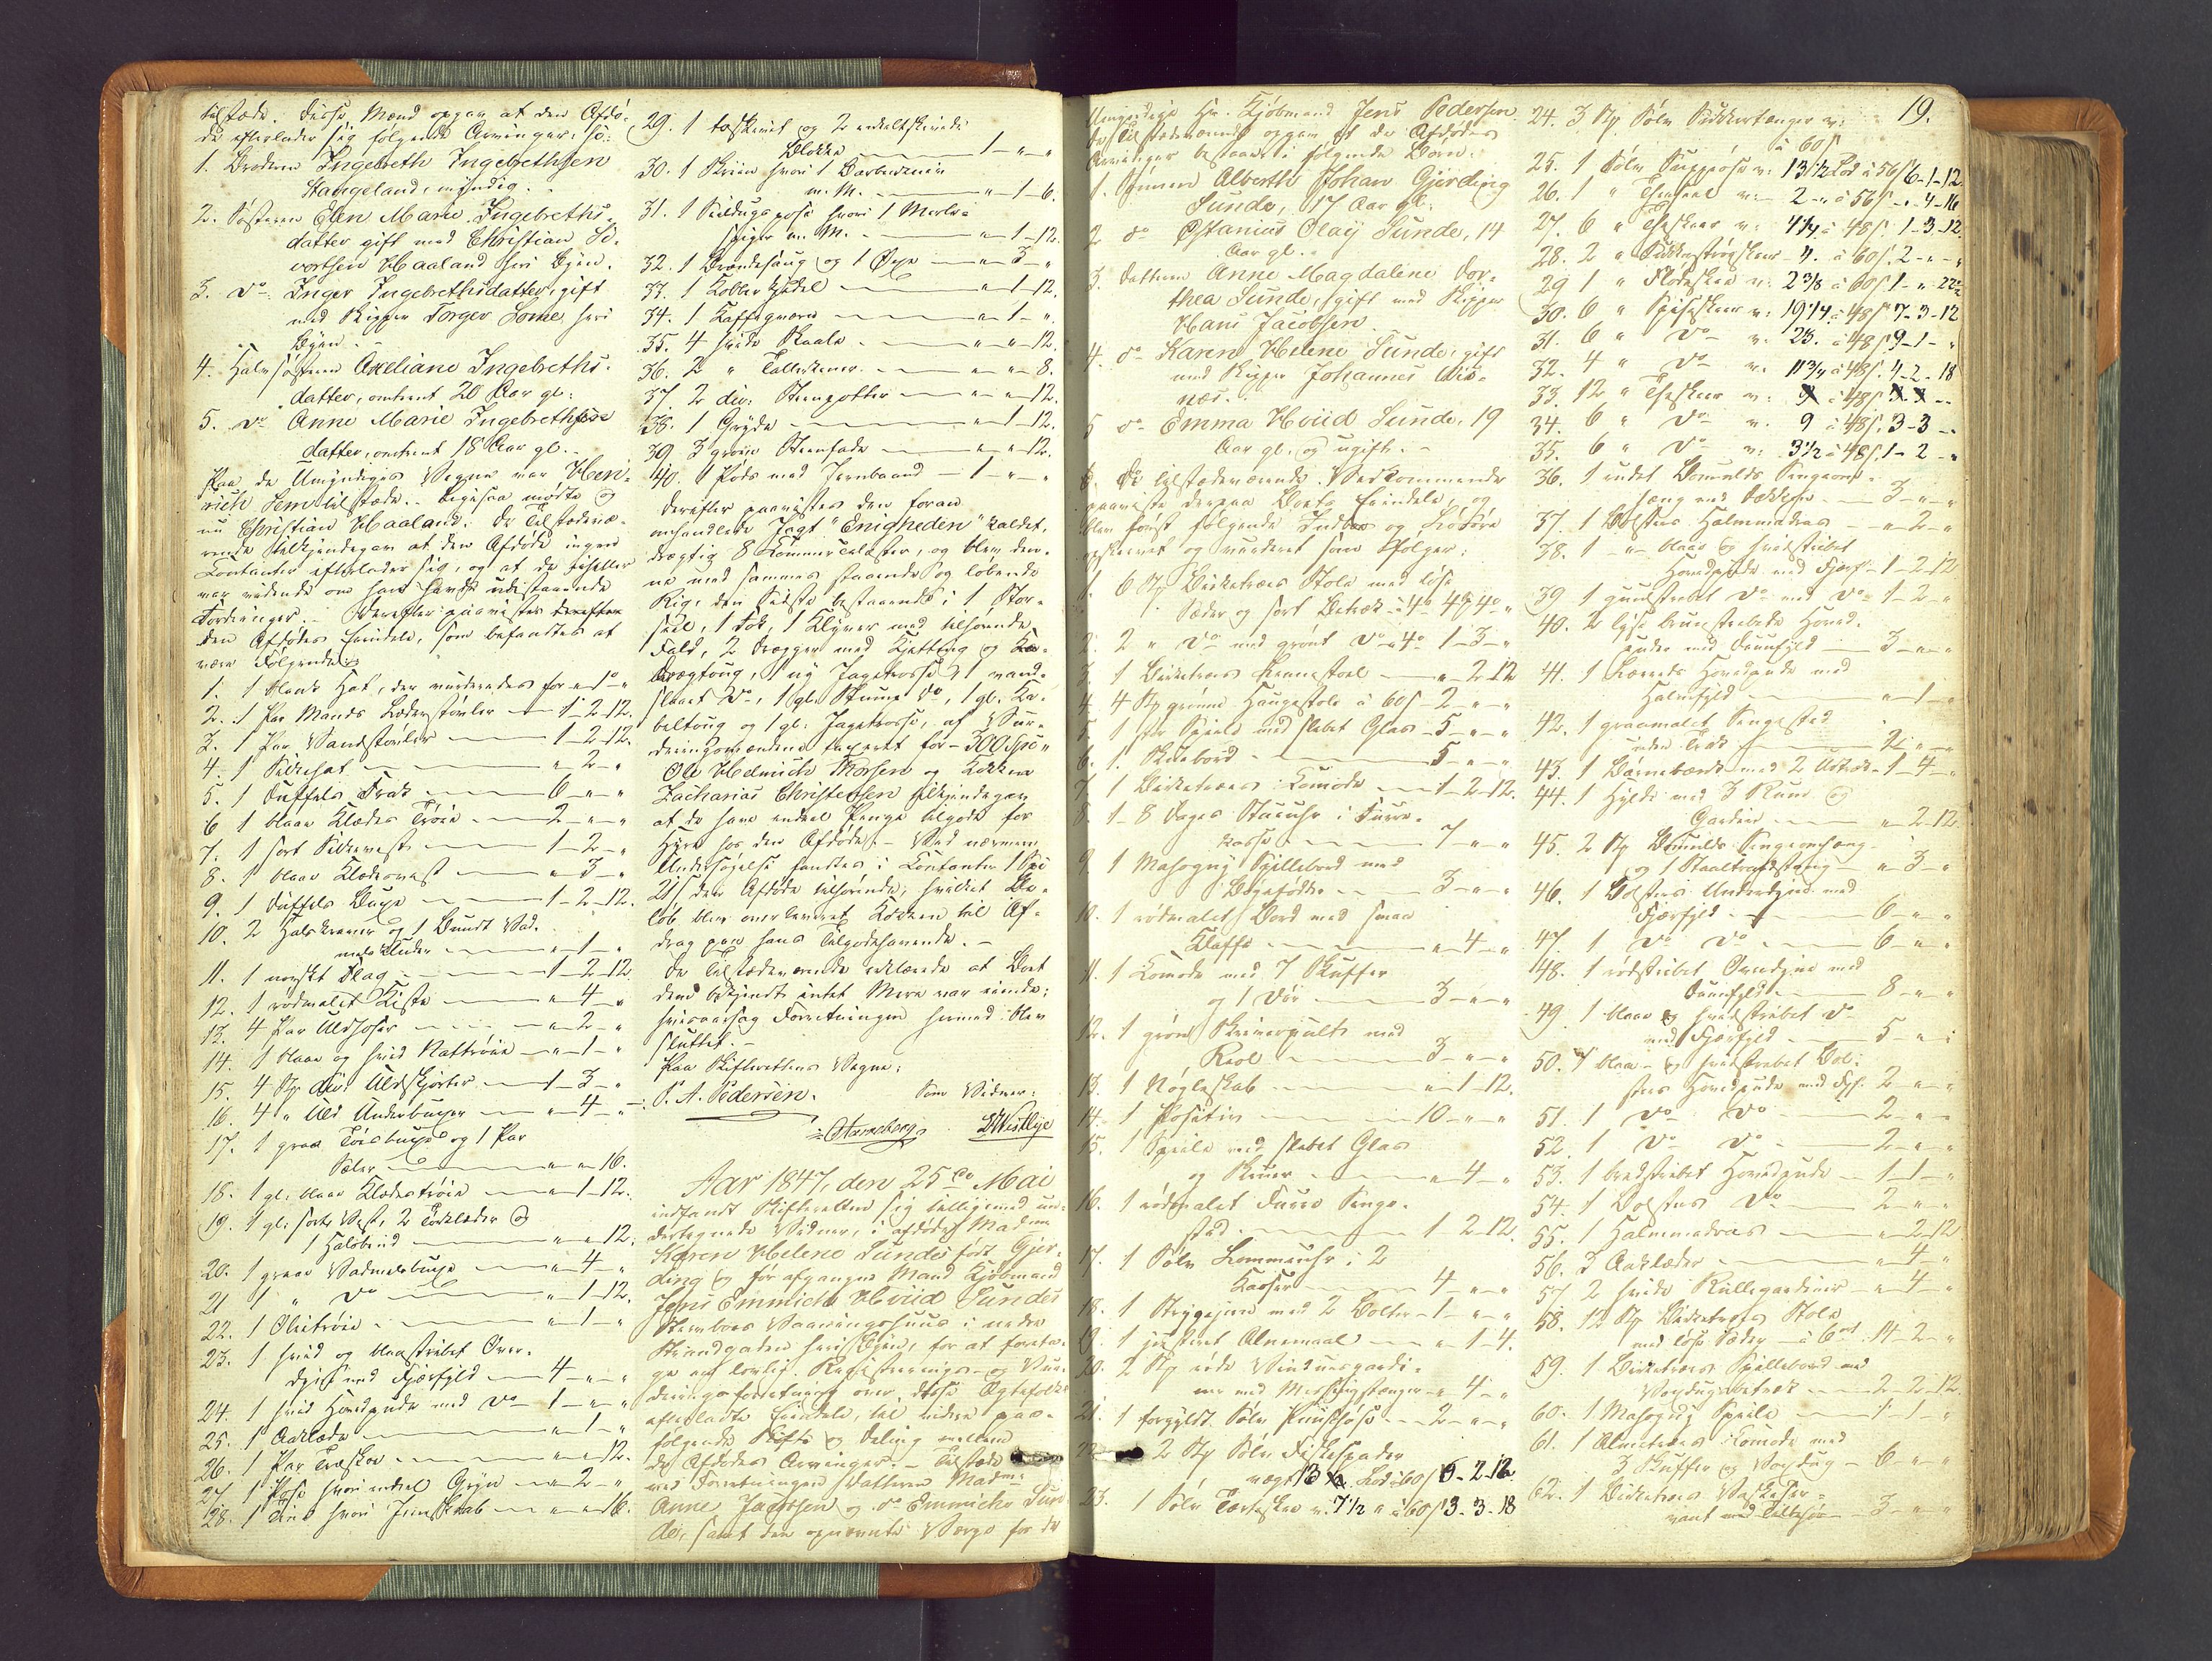 tilstede. Disse Mænd opgav at den Afdø-
de efterlader sig følgende Arvinger: so:
1. Broderen Ingebreth Ingebrethsen
Stangeland, myndig.
2. Søsteren Elen Marie Ingebreths-
datter gift med Christian Si-
vertsen Haaland her i Byen.
3. do Inger Ingebrethsdatter, gift
med Skipper Torger Lome, her i
Byen.
4. Halvsøsteren Axeliane Ingebreths-
datter, omtrent 20 Aar gl:
5. do Anne Marie Ingebreths-
datter, omtrent 18 Aar gl.
Paa de Umyndiges Vegne var Hen-
rich Sem tilstede. Ligesaa mødte og
nu Christian Haaland. De Tilstedevæ-
rende tilkjendegav at den Afdøde ingen
Contanter efterlader sig, og at de heller
var vidende om havde udestaaende
Fordringer. Derefter paavistes
den Afdødes Eiendele, som befandtes at
være Følgende:
1. 1 blank Hat, der vurderedes for " 1o "
2. 1 Par Mands Læderstøvler 1-2-12.
3. 1 Par Vandstøvler 1-2-12.
4. 1 Silkehat " 2 "
5. 1 Duffels Frak 6 " "
6 1 blaa Klædes Trøie 2 " "
7. 1 sort Silkevest 1-2 "
8. 1 blaa Klædesvest " 3 "
9. 1 Duffels Buxe 1-2-12.
10. 2 Halskraver og 1 Bundt Vad-
mels Klude " 1 "
11. 1 norskt Flag 1-2-12
12. 1 rødmalet Kiste " 4 "
13. 4 Par Uldhoser " 2 "
14. 1 blaa og hvid Nattrøie " 1 "
15. 4 Stp div: Uldskjorter 1-3 "
16. 4 " Uld Underbuxer " 4 "
17. 1 graa Tøisbuxe og 1 Par
Seler " " 16.
18. 1 gl: blaa Klædestrøie " 1-12.
19. 1 gl: sort Vest, 2 Tørklæder og
1 Halsbind " " 12.
20. 1 graa Vadmelsbuxe " 4 "
21 1 " do " 1-12.
22. 1 Olietrøie " 1 "
23. 1 hvid og blaastribet Over-
dyne med Fjærfyld 4 " "
24. 1 hvid Hovedpude med do 1 " "
25. 1 Aaklæde " 1 "
26. 1 Par Træskoe " " 12.
27 1 Pose hvori endeel Gryn " 2 "
28. 1 Tine hvori Jernskrab " " 16.
29. 1 toskivet og 2 enkeltskivede
Blokke 1 " "
30. 1 Skrin hvori 1 Barberkniv
m. M. " 1-6.
31. 1 Seildugspose hvori 1 Merle-
spiger m. M. " 1-12.
32. 1 Brændesaug og 1 Øxe " 3 "
33. 1 Kobberkjedel " 1-12.
34. 1 Kaffeqværn " 1 "
35. 4 hvide Skaale " " 12.
36. 2 " Tallerkener " " 8.
37. 2 div: Steenpotter " " 12.
38. 1 Gryde " 1-12.
39 3 grove Steenfade " " 12.
40. 1 Pøds med Jernbaand 1 " "
Derefter paavistes den foran
omhandlede Jagt "Enigheden" kaldet,
drægtig 8 Commercelæster, og blev den-
ne med sammes staaende og løbende
Rig; den Sidste bestaaende i 1 Stor-
seil, 1 Fok, 1 Klyver med tilhørende
Fald, 2 Drægger med Kjetting og
Drægtoug, 1 ny Jagetrosse, 1 vand-
slaaet do, 1 gl: Stump do, 1 gl: Ka-
beltoug og 1 gl: Jagetrosse, af Vur-
deringsmændene taxeret for 300 Spd "
Ole Helmich Thorsen og Kokken
Zacharias Christensen tilkjendegav
at de have endeel Penge tilgode for
Hyre hos den Afdøde. Ved nærmere
Undersøgelse fandtes i Contanter 1 Spd
21 s den Afdøde tilhørende, hvilket Be-
løb blev overleveret Kokken til Af-
drag paa hans Tilgodehavende.
De Tilstedeværende erklærede at Boet
dem bekjendt intet Mere var eiende;
hvisaarsag Forretningen hermed blev
sluttet.
Paa Skifterettens Vegne:
P. A. Pedersen. Som Vidner:
Aar 1847, den 25de Mai
indfandt Skifteretten sig tilligemed un-
dertegnede Vidner, i afdøde Madme
Karen Helene Sundes født Gjer-
ding og før afgangne Mand Kjøbmand
Jens Emmich Hviid Sundes
Sterboes Vaaningshuus i nedre
Strandgaden her i Byen, for at foreta-
ge en lovlig Registrerings- og Vur-
deringsforretning over disse Ægtefolks
efterladte Eiendele, til videre paa-
følgende Skifte og Deling mellem
de Afdødes Arvinger. Tilstede
ved Forretningen Datteren Madme
Anne Jacobsen og do Emmiche Sun-
de, samt den opnævnte Værge for de
19.
Umyndige Hr. Kjøbmand Jens Pedersen.
De Tilstedeværende opgav at de Afdødes
Arvinger bestaaer i følgende Børn:
1. Sønnen Alberth Johan Gjerding
Sunde, 17 Aar gl:
2 do Østanius Olaij Sunde, 14
Aar gl.
3. Datteren Anne Magdaline Dor-
thea Sunde, gift med Skipper
Hans Jacobsen.
4. do Karen Helene Sunde, gift
med Skipper Johannes Wis-
næs.
5 do Emma Hviid Sunde, 19
Aar gl. og ugift.
De tilstedeværende Vedkommende
paaviste derpaa Boets Eiendele, og
blev først følgende Indboe og Løsøre
registreret og vurderet som Følger:
1. 6 Stp Birketræes Stole med løse
Sæder og sort Betræk à 4o 4-4o "
2. 2 " do med grønt do à 4o 1-3 "
3. 1 Birketræes Lænestoel " 2-12
4. 4 Stp grønne Haugestole à 60 s 2 " "
5. 1 stor Speile med slebet Glas 5 " "
6. 1. Skivebord 5 " "
7 1 Birketræes Komode 1-2-12.
8. 1 8 Dages Stueuhr i Furre-
kasse 7 " "
9. 1 Mahogny Spillebord med
Bøgefødder 3 " "
10. 1 rødmalet Bord med smaa
Klaffe " 4 "
11. 1 Komode med 7 Skuffer
og 1 Dør 3 " "
12. 1 grøn Skriverpult med
Reol 3 " "
13. 1 Nøgleskab " 1-12.
14. 1 Positiv 10 " "
15. 1 Speile med slebet Glas
og Skuer " 4 "
16. 1 rødmalet Furre Senge-
sted 1 2-12.
17. 1 Sølv Lommeuhr i 2
Kasser 4 " "
18. 1 Strygejern med 2 Bolter 1 " "
19. 1 justeret Alnemaal " 1-4.
20. 2 Stp røde Vinduesgardi-
ner med Messingstænger " 4 "
21. 1 forgyldt Sølv Punschøse 2 " "
22. 2 Stp Sølv Fiskespader
vægt 13 Lod à 60 s 6-2-12
23. 1 Sølv Tærteskee v. 7 1/2 " à 60 s 3-3-18
24. 3 Stp Sølv Sukkertænger v:
à 60 s
25. 1 Sølv Suppeøse v: 13 1/2 Lod à 56 s 6-1-12
26. 1 " Theseel v: 2 " à 56 s " 4-16
27. 6 " Theskeer v: 4 1/4 à 48 s 1-3-12
28. 2 " Sukkerstrøskeer 4. à 60 s. 2 " "
29 1 " Flødeskee v: 2 3/8 à 60 s 1 " 22 1/2
30. 6 " Spiseskeer v: 19 1/4 à 48 s 7-3-12
31. 6 " do v: 23. à 48 s 9-1 "
32. 4 " do v: 11 3/4 à 48 s. 4-2-18
33. 12 " Theskeer v: à 48 s
34. 6 " do v. 9 à 48 s. 3-3 "
35. 6 " do v: 3 1/2 à 48 s. 1-2 "
36. 1 rudet Bomulds Sengeom-
hæng med Dækken 3 " "
37. 1 Bolsters Halmmadras " 2 "
38. 1 " blaa og hvidstribet
Hovedpude med Fjer 1-2-12
39 1 guulstribet do med do 1-2 "
40. 2 lyse bruunstribede Hoved-
puder med Duunfyld 3 " "
41. 1 Lærreds Hovedpude med
Halmfyld " 1 "
42. 1 graamalet Sengested
uden Træk 2 " "
43. 1 Børnebænk med 2 Udtræk 1-4 "
44. 1 Hylde med 3 Rum og
Gardin " 2-12.
45. 2 Stp Bomulds Sengeomhæng
og 1 Staaltraadstang " 3 "
46. 1 Bolsters Underdyne med
Fjærfyld 6 " "
47. 1 do do 6 " "
48. 1 rødstribet Overdyne med
Duunfyld 8 " "
49. 1 blaa og hvidstribet do
med Fjærfyld 5 " "
50. 1 blaa- og hvidstribet Bol-
sters Hovedpude med Fjf. 2 " "
51. 1 do do 2 " "
52. 1 do do 2 " "
53. 1 bredstribet Hovedpude 1-1 "
54. 1 Bolsters do 2 " "
55. 1 Halmmadras " 2-12
56. 3 Aaklæder " 4 "
57 2 hvide Rullegardiner " 4 "
58. 12 Stp Birketræes Stole
med løse Sæder à 6 ort 14-2 "
59. 1 Birketræes Spillebord med
Voxdugsbetræk 2-2-12.
60. 1 Mahogny Speile 1-1 "
61. 1 Almetræes Komode med
3 Skuffer og Voxdug 6 " "
62. 1 Birketræes Vaskeser-
vant med Tilbehør 3 " "